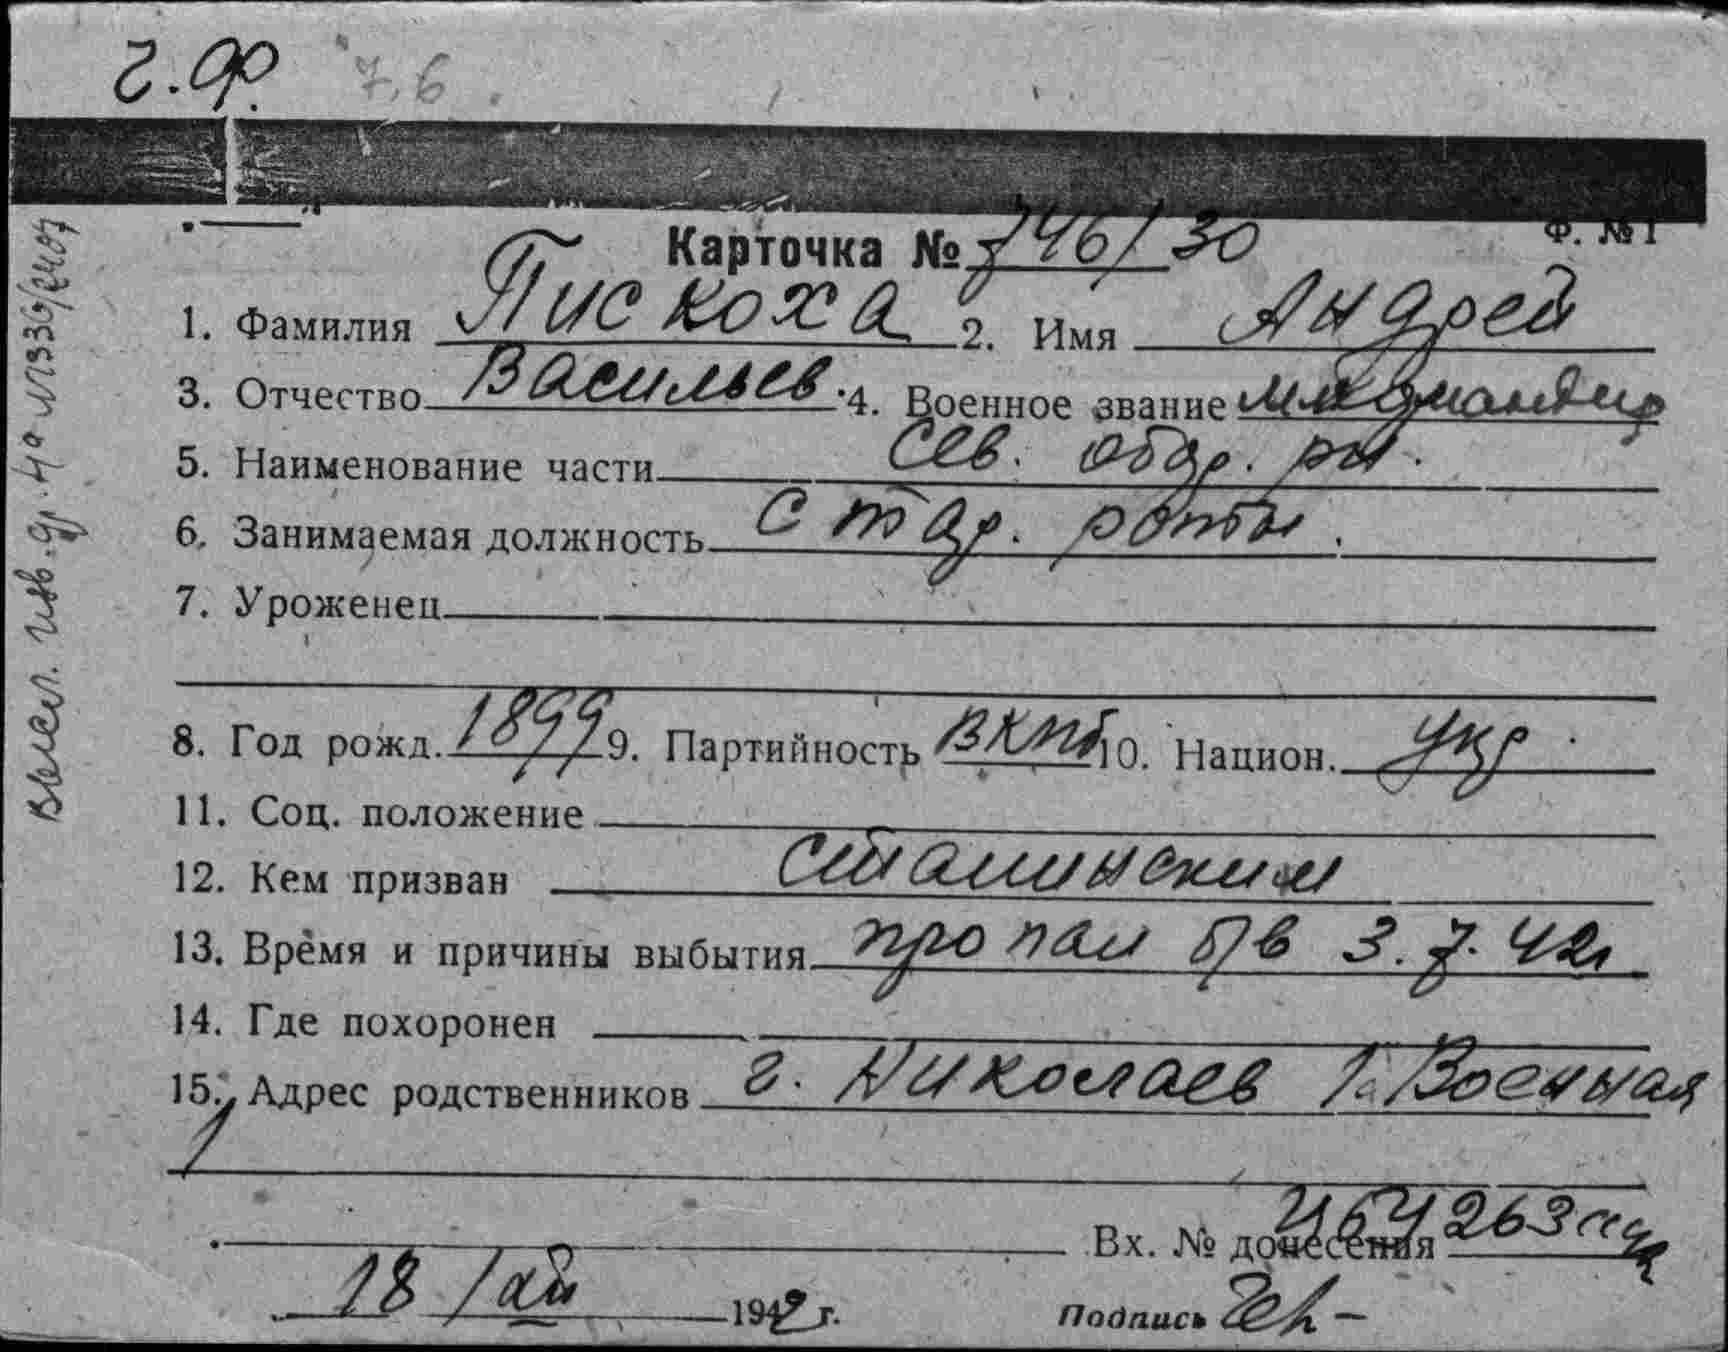 г.Ф. 7.6
Ф. № 1
Карточка № 746/30
1. Фамилия Пискоха 2. Имя Андрей
3. Отчество Васильев. 4. Военное звание мл командир
5. Наименование части Сев. обор. р-н.
6. Занимаемая должность Стар. роты.
7. Уроженец
8. Год рожд. 1899 9. Партийность ВКПб 10. Национ. Укр
11. Соц. положение
12. Кем призван Сталинским
13. Время и причины выбытия пропал б/в 3.7.42г
14. Где похоронен
15. Адрес родственников г. Николаев 1. Военная
1
Вх. № донесения
18 /май 1949 г. Подпись